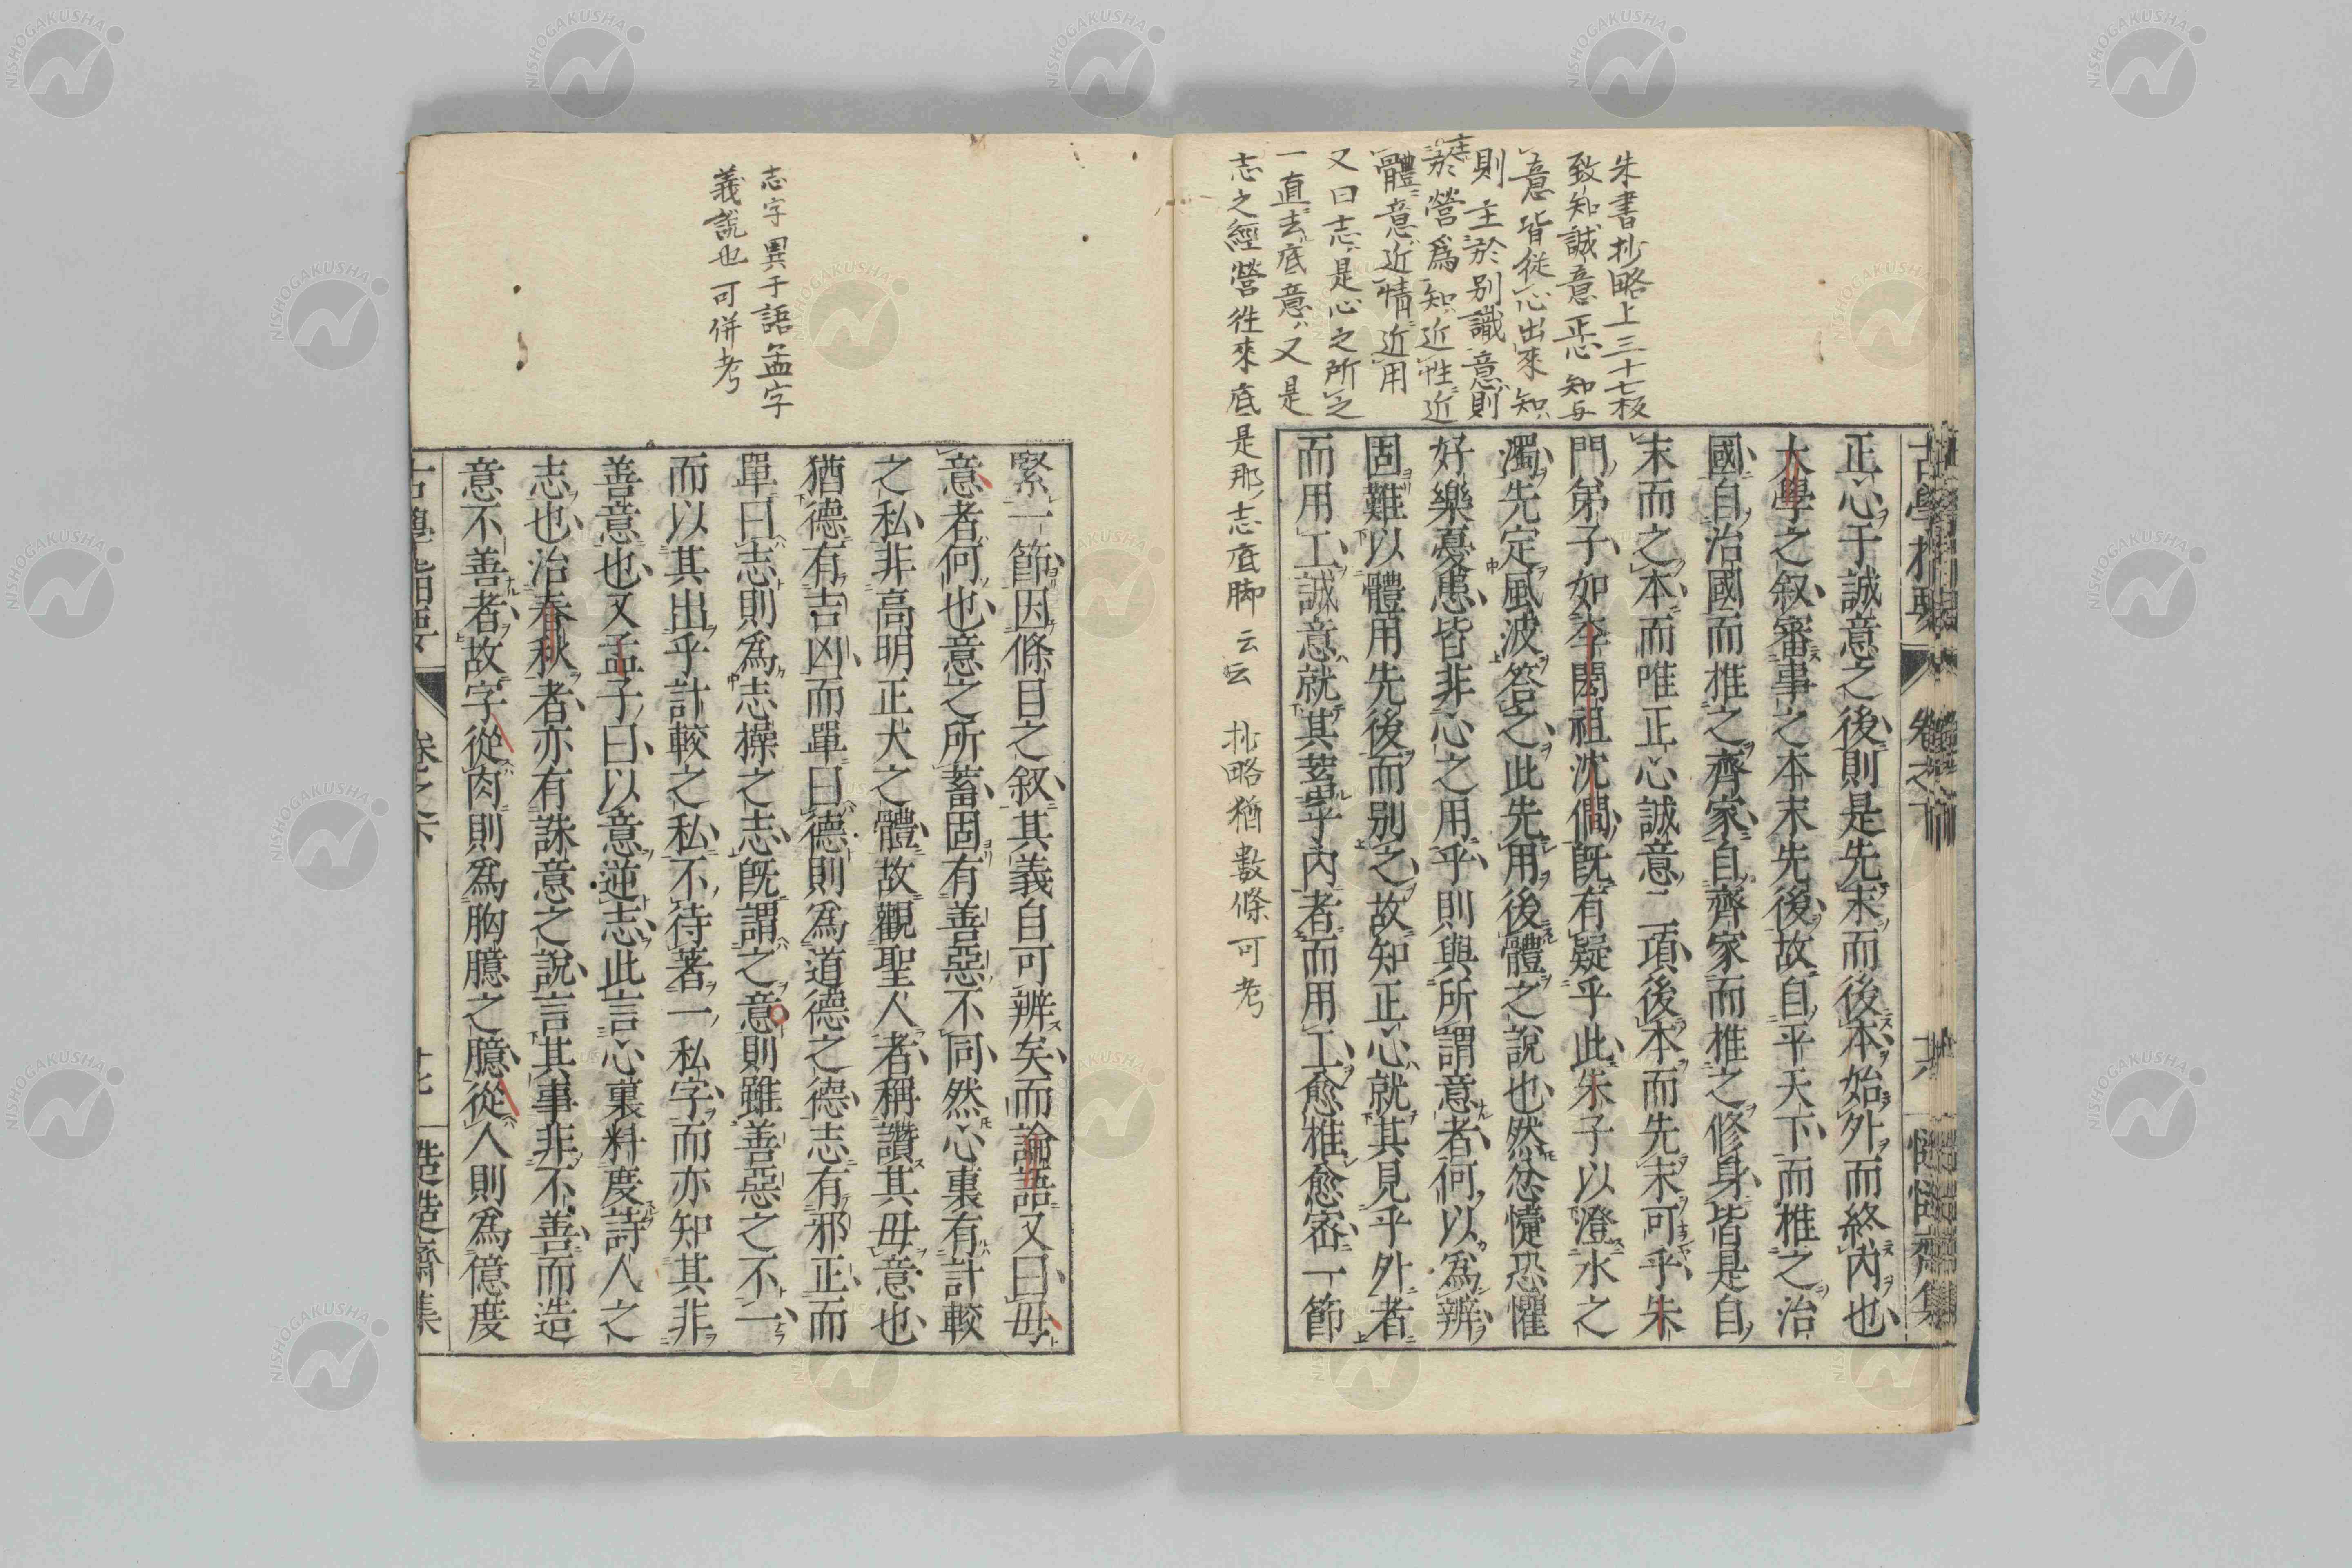 朱書抄略上三十七板
致知誠意正心知与
意皆従心出來知
則主於別識意則
志
於營爲知近性近
體意近情近用
又曰志是心之所之
一直去底意又是
志之經營徃來底是那志底脚云云 抄略猶數條可考
正心于誠意之後則是先末而後本始外而終內也
大學之叙審事之本末先後故自平天下而推之治
國自治國而推之齊家自齊家而推之修身皆是自
末而之本而唯正心誠意二項後本而先末可乎朱
門弟子如李閎祖沈僴旣有疑乎此朱子以澄水之
濁先定風波答之此先用後體之說也然忿懥恐懼
好樂憂患皆非心之用乎則與所謂意者何以爲辨
固難以體用先後而別之故知正心就其見乎外者
而用工誠意就其萃乎內者而用工愈推愈密一節
志字異于語孟字
義說也可併考
緊一節因條目之叙其義自可辨矣而論語又曰毋
意者何也意之所蓄固有善惡不同然心裏有計較
之私非高明正大之體故觀聖人者稱讚其毋意也
猶德有吉凶而單曰德則爲道德之德志有邪正而
單曰志則爲志操之志旣謂之意則雖善惡之不一
而以其出乎計較之私不待著一私字而亦知其非
善意也又孟子曰以意逆志此言心裏料度詩人之
志也治春秋者亦有誅意之說言其事非不善而造
意不善者故字從肉則爲胸臆之臆從人則爲億度
卷之下